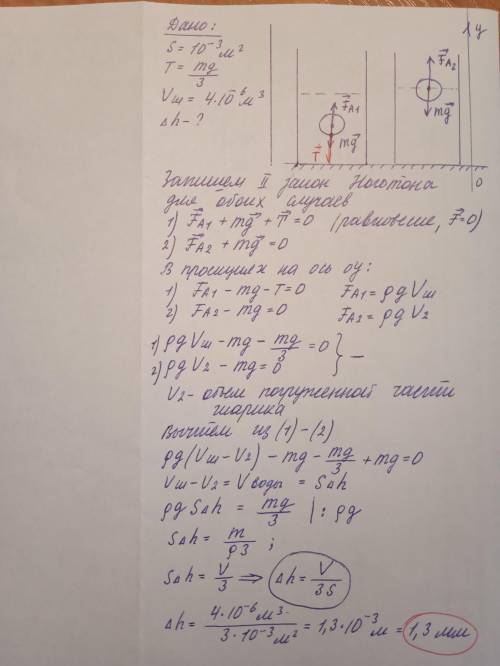 Дано:
S = 10⁻³ м²
T = mg/3
Vш = 4·10⁻⁶ м³
Δh - ?
y
F⃗A1
mg⃗
T⃗
F⃗A2
mg⃗
0
Запишем II закон Ньютона
для обоих случаев
1) F⃗A1 + mg⃗ + T⃗ = 0 (равновесие, F⃗=0)
2) F⃗A2 + mg⃗ = 0
В проекциях на ось oy:
1) FA1 - mg - T = 0 FA1 = ρgVш
2) FA2 - mg = 0 FA2 = ρgV2
1) ρgVш - mg - mg/3 = 0
2) ρgV2 - mg = 0 } —
V2 - объем погруженной части
шарика
Вычтем из (1) - (2)
ρg(Vш - V2) - mg - mg/3 + mg = 0
Vш - V2 = Vводы = SΔh
ρgSΔh = mg/3 | : ρg
SΔh = m/ρ3 ;
SΔh = V/3 ⇒ Δh = V/3S
Δh = 4·10⁻⁶ м³/3·10⁻³ м² = 1,3·10⁻³ м = 1,3 мм